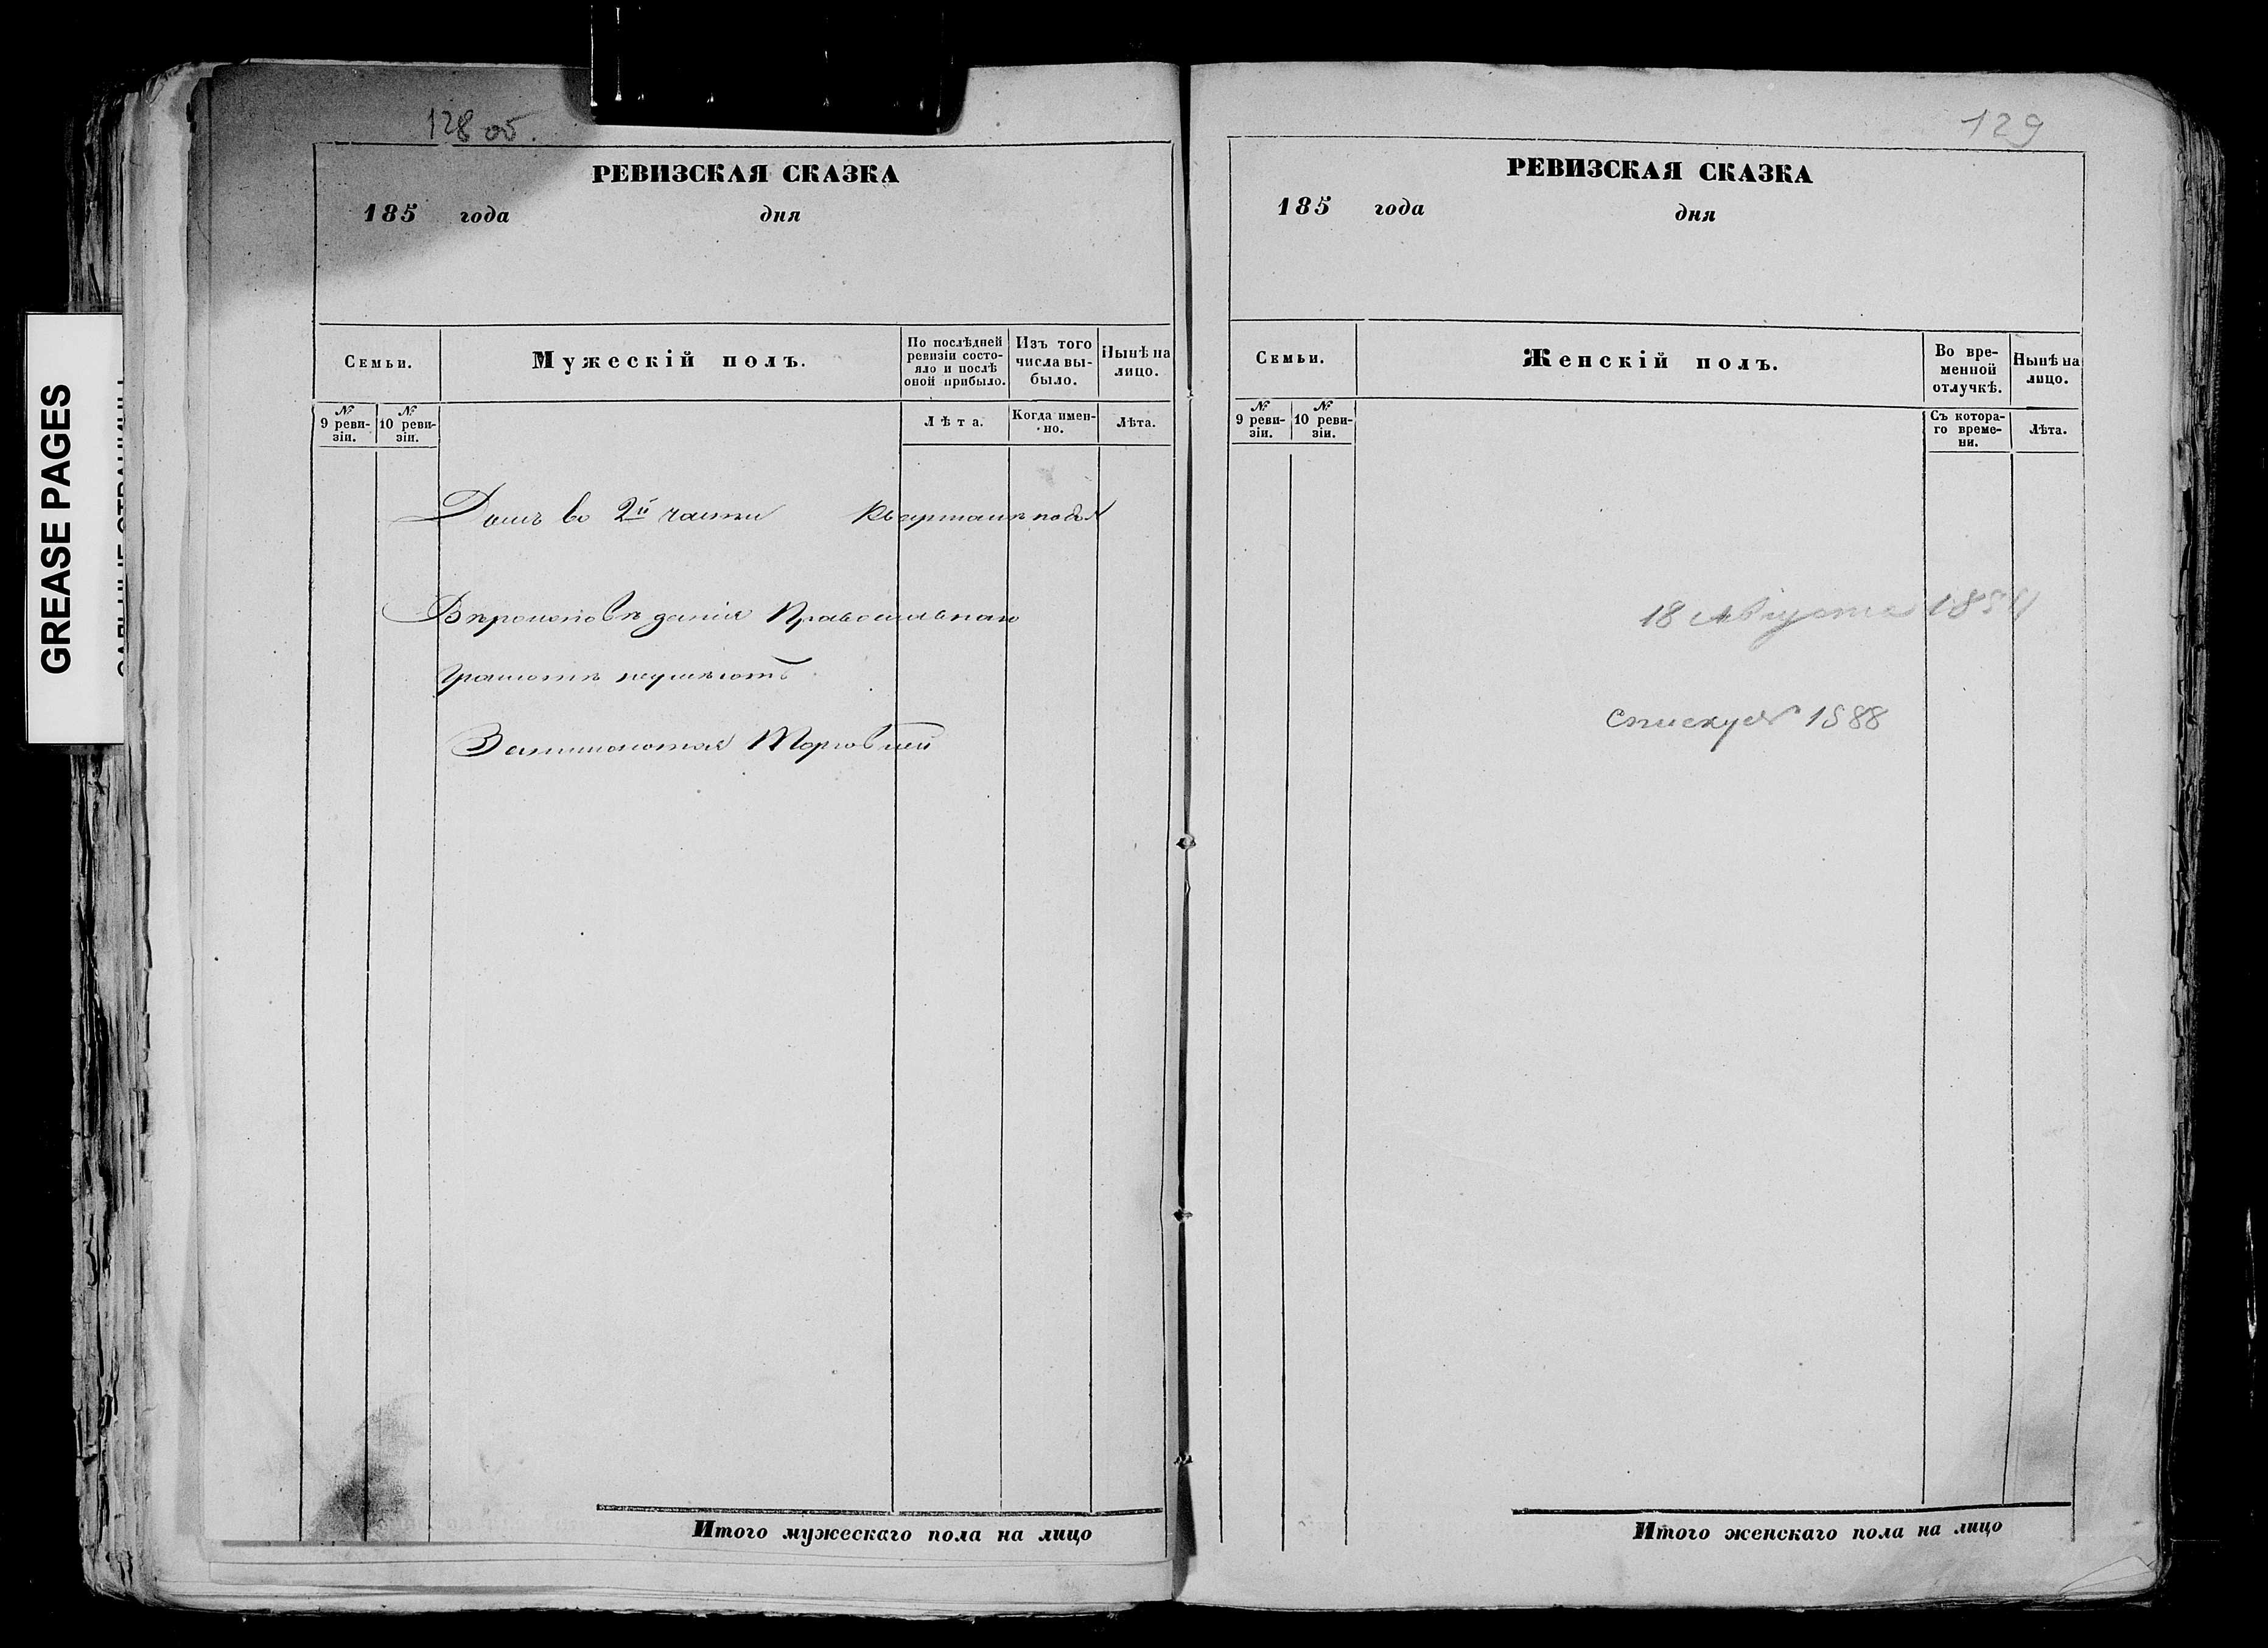 128 об.
РЕВИЗСКАЯ СКАЗКА
185 года дня
Семьи.
Мужескій полъ.
По послѣдней
ревизіи состо-
яло и послѣ
оной прибыло.
Изъ того
числа вы-
было.
Нынѣ на
лицо.
№
9 реви-
зіи.
№
10 реви-
зіи.
Лѣта.
Когда имен-
но.
Лѣта.
Домъ во 2й части Кварталѣ под №
Вѣроисповѣданія Православнаго
Грамотѣ неумѣютъ
Занимаются Торговлей
Итого мужескаго пола на лицо
129
РЕВИЗСКАЯ СКАЗКА
185 года дня
Семьи.
Женскій полъ.
Во вре-
менной
отлучкѣ.
Нынѣ на
лицо.
№
9 реви-
зіи.
№
10 реви-
зіи.
Съ котора-
го време-
ни.
Лѣта.
18 Августа
Итого женскаго пола на лицо
GREASE PAGES